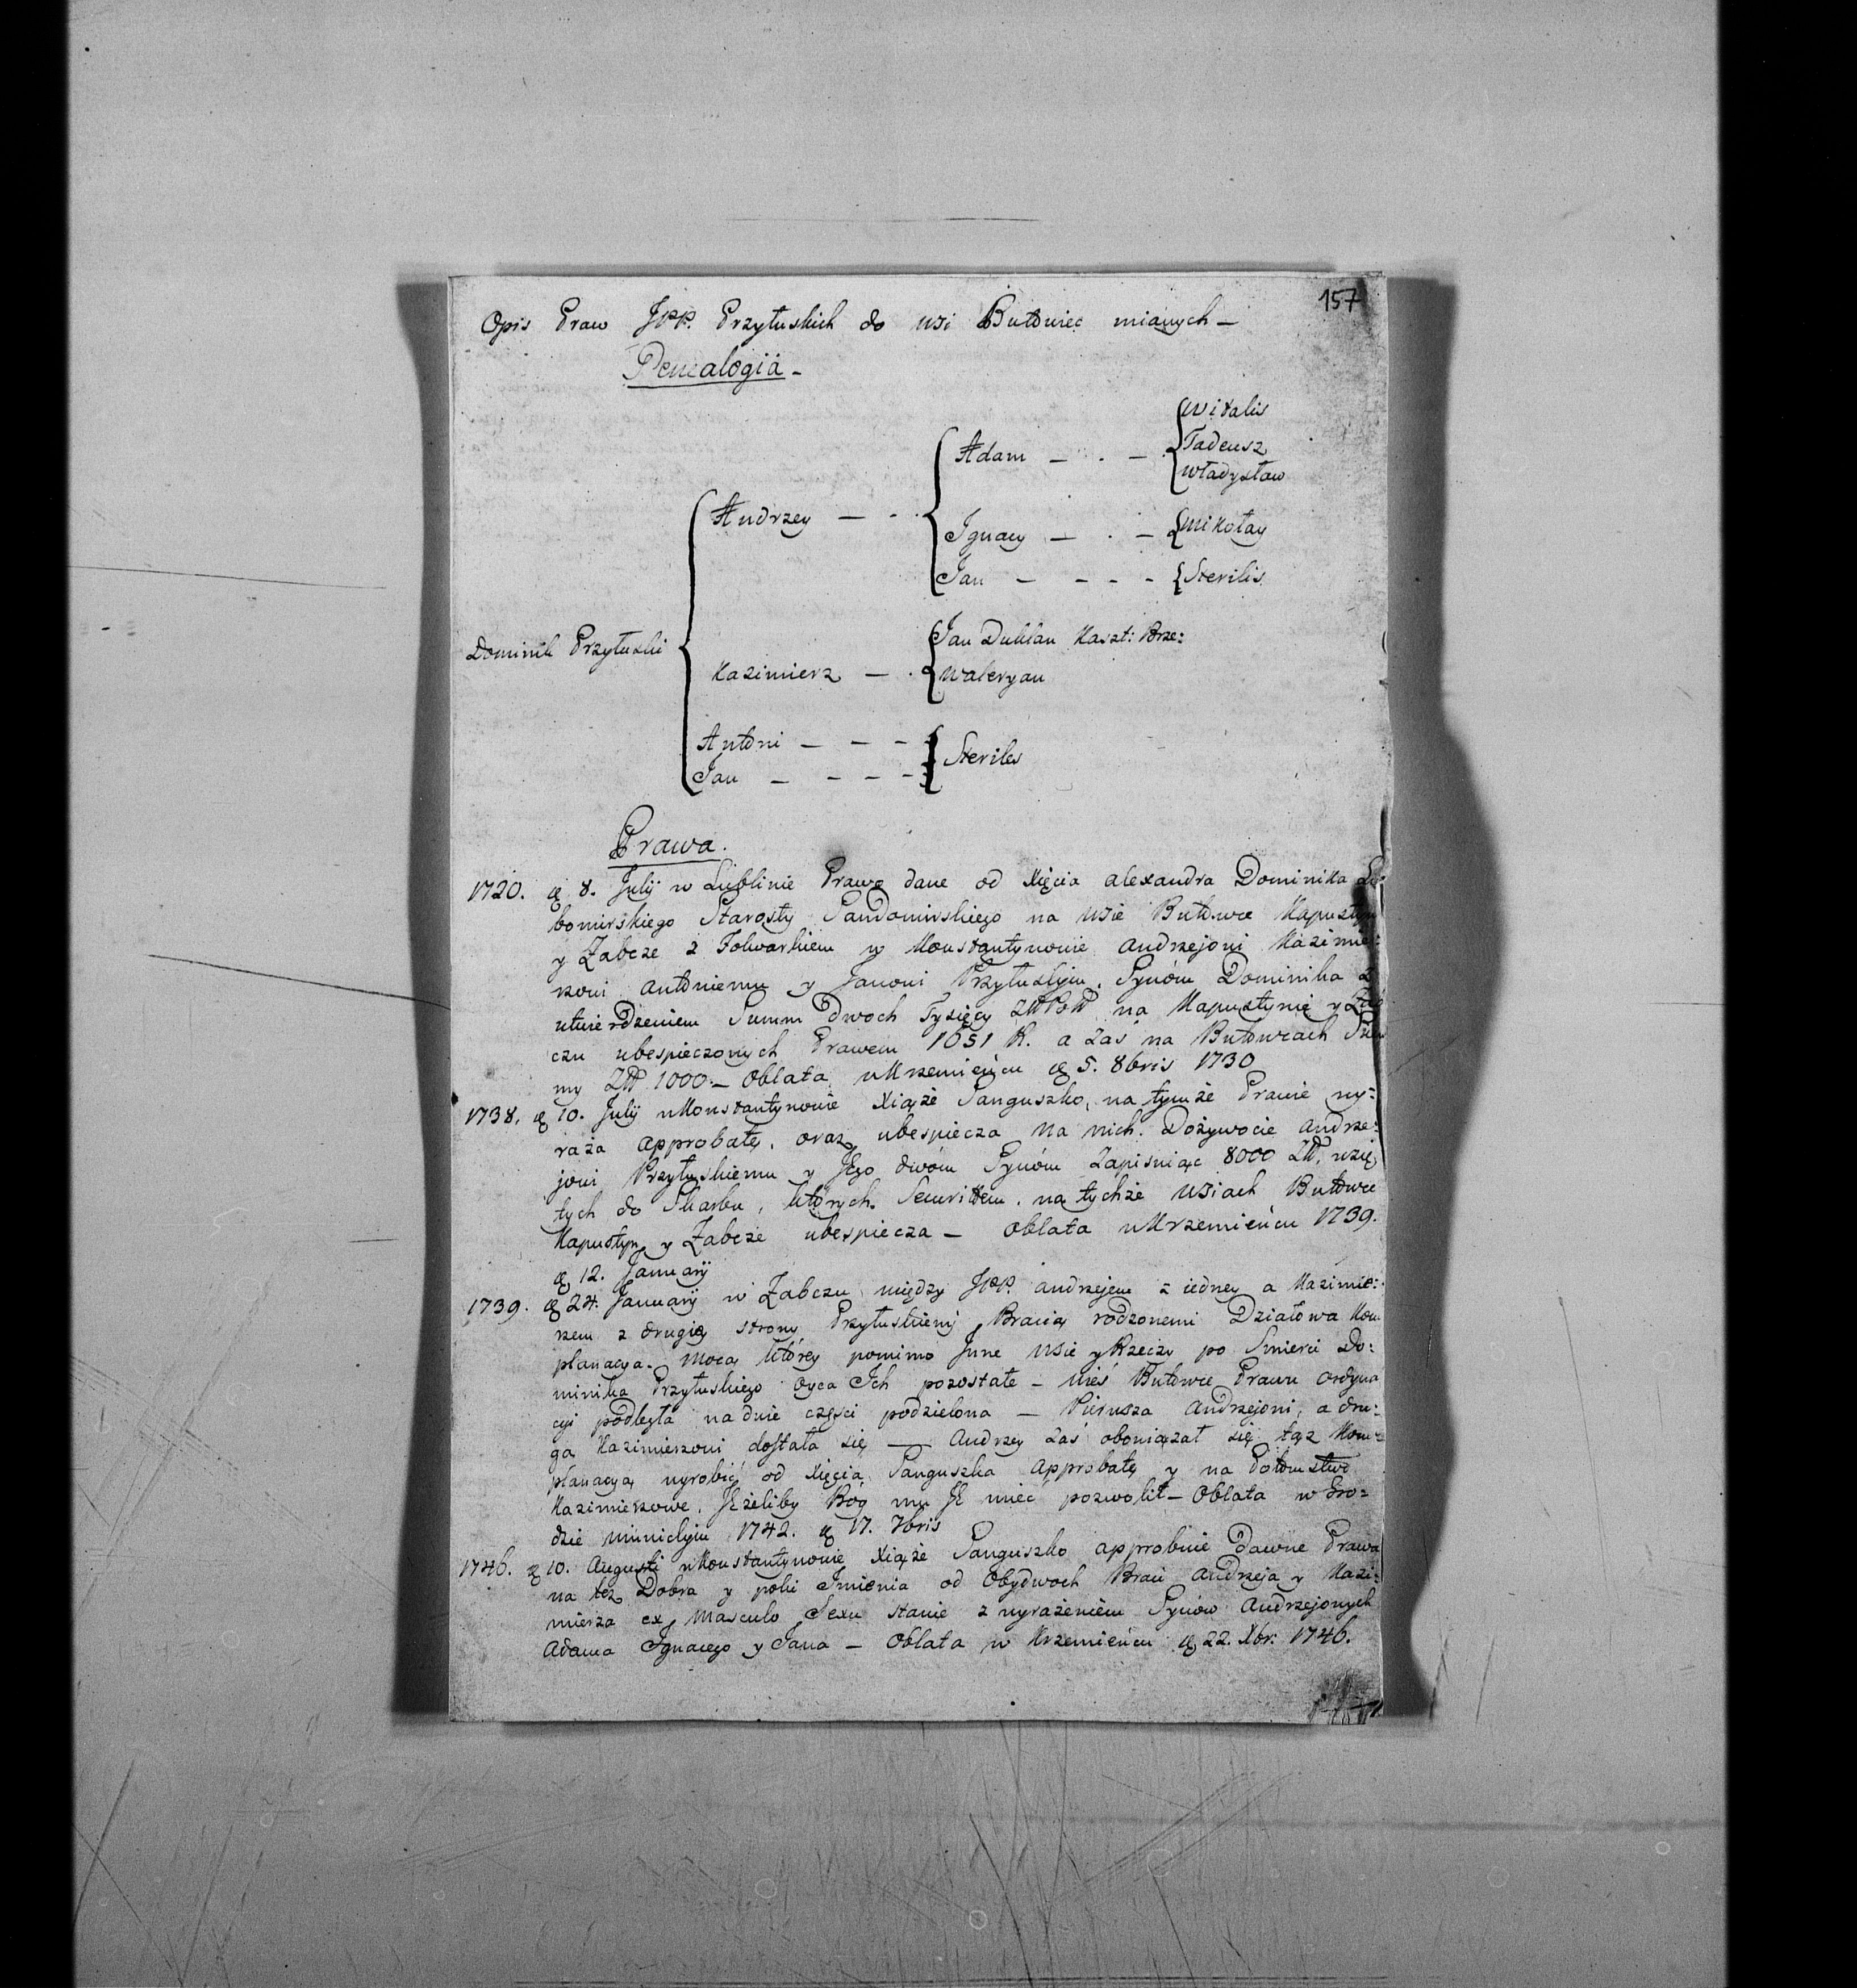 157
Opis Praw JPP. Przyłuskich do wsi Butowiec mianych –
Genealogia –
Witalis
Adam – . – Tadeusz
Władysław
Andrzey – - .
Ignacy – . – Mikołay
Jan – – – – Sterilis
Jan Duklan Kaszt: Brze:
Dominik Przyłuski
Kazimierz – . Waleryan
Antoni – – –
Steriles
Jan – – – –
Prawa.
1720. d 8. Julij w Lublinie Prawo dane od Xięcia Alexandra Dominika Lu-
bomirskiego Starosty Sandomirskiego na wsie Butowce Kapustyn
y Zabcze z Folwarkiem w Konstantynowie Andrzejowi Kazimie:
rzowi Antoniemu y Janowi Przyłuskym, Synóm Dominika z
utwierdzeniem Summ Dwoch Tysięcy Złł Poll na Kapustynie y Zab
czu ubespieczonych Prawem 1651 R. a zaś na Butowcach Sum
my Złł 1000 – Oblata w Krzemieńcu d 5. 8bris 1730
1738. d 10. Julij w Konstantynowie Xiąże Sanguszko, na tymże Prawie wy:
raża approbatę, oraz ubespiecza na nich Dożywocie Andrze:
jowi Przyłuskiemu y Jego dwóm Synóm Zapisuiąc 8000 Złł, wzię
tych do Skarbu, których Securitem na tychże wsiach Butowce
Kapustyn y Zabcze ubespiecza – Oblata w Krzemieńcu 1739.
d 12. Januarij
1739. d 24. Januarij w Zabczu między JPP. Andrzejem z iedney a Kazimie:
rzem z drugię strony Przyłuskiemi Bracią rodzonemi Działowa Kom
planacya. Mocą którey pomimo Inne wsie y Rzeczy po Smierci Do:
minika Przyłuskiego Oyca Ich pozostałe – wieś Butowce Prawu ordyna
cyi podległa na dwie części podzielona – Pierwsza Andrzejowi, a dru:
ga Kazimierzowi dostała się – Andrzey zas obowiązał się tąż Kom:
planacyą wyrobić od Xięcia Sanguszka Approbatę y na Potomstwo
Kazimierzowe, Jeżeliby Bóg mu Je mieć pozwolił – Oblata w Gro:
dzie Winnickim 1742. d 17. 7bris
1746. d 10. Augusti w Konstantynowie Xiąże Sanguszko approbuie dawne Prawa
na też Dobra y poki Imienia od Obydwoch Braci Andrzeja y Kazi:
mierza ex Masculo Sexu stanie z wyrażeniem Synów Andrzejowych
Adama Ignacego y Jana – Oblata w Krzemieńcu d 22. Xbr. 1746.